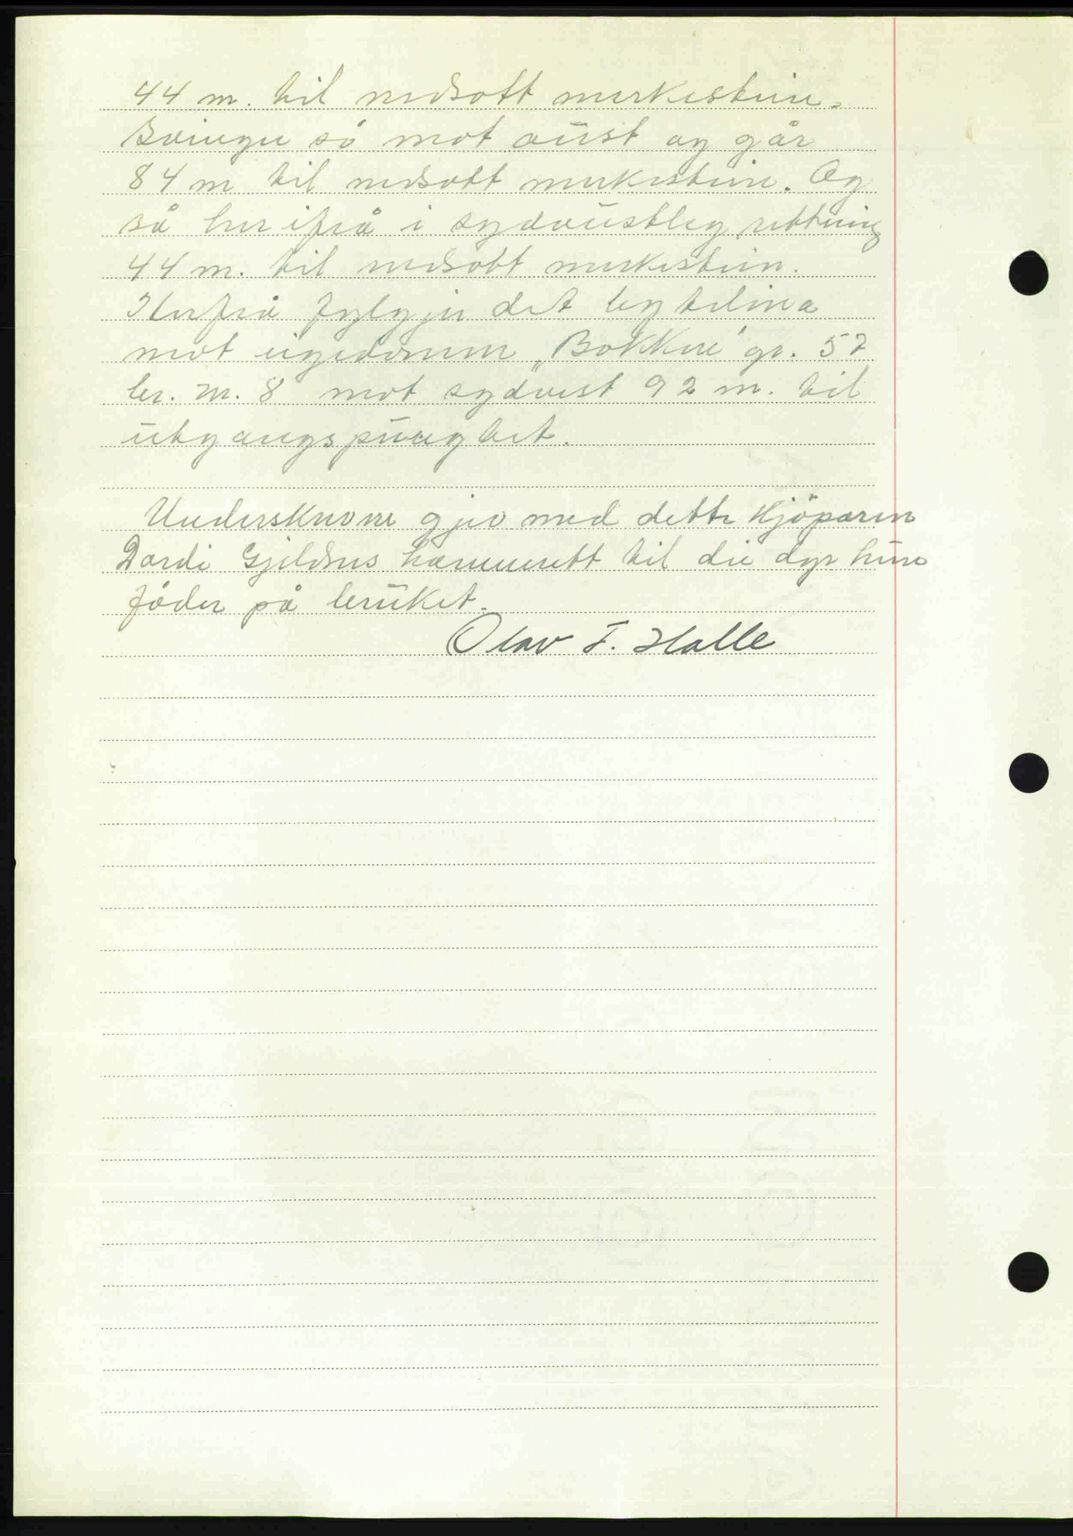 44 m. til nedsatt merkestein.
Svingu så mot aust og går
84 m til nedsatt merkestein. Og
så her ifrå i sydaustleg rettning
44 m. til nedsatt merkestein.
Herfrå fylgjer det bytelina
mot eigedomen „Bakken" gr. 57
br. nr. 8 mot sydvest 92 m. til
utgangspunghet.
Underskrevne gjev med dette kjöparen
Dordi Gjeldnes hamnrett til die dyr hun
föder på bruket.
Olav F. Halle